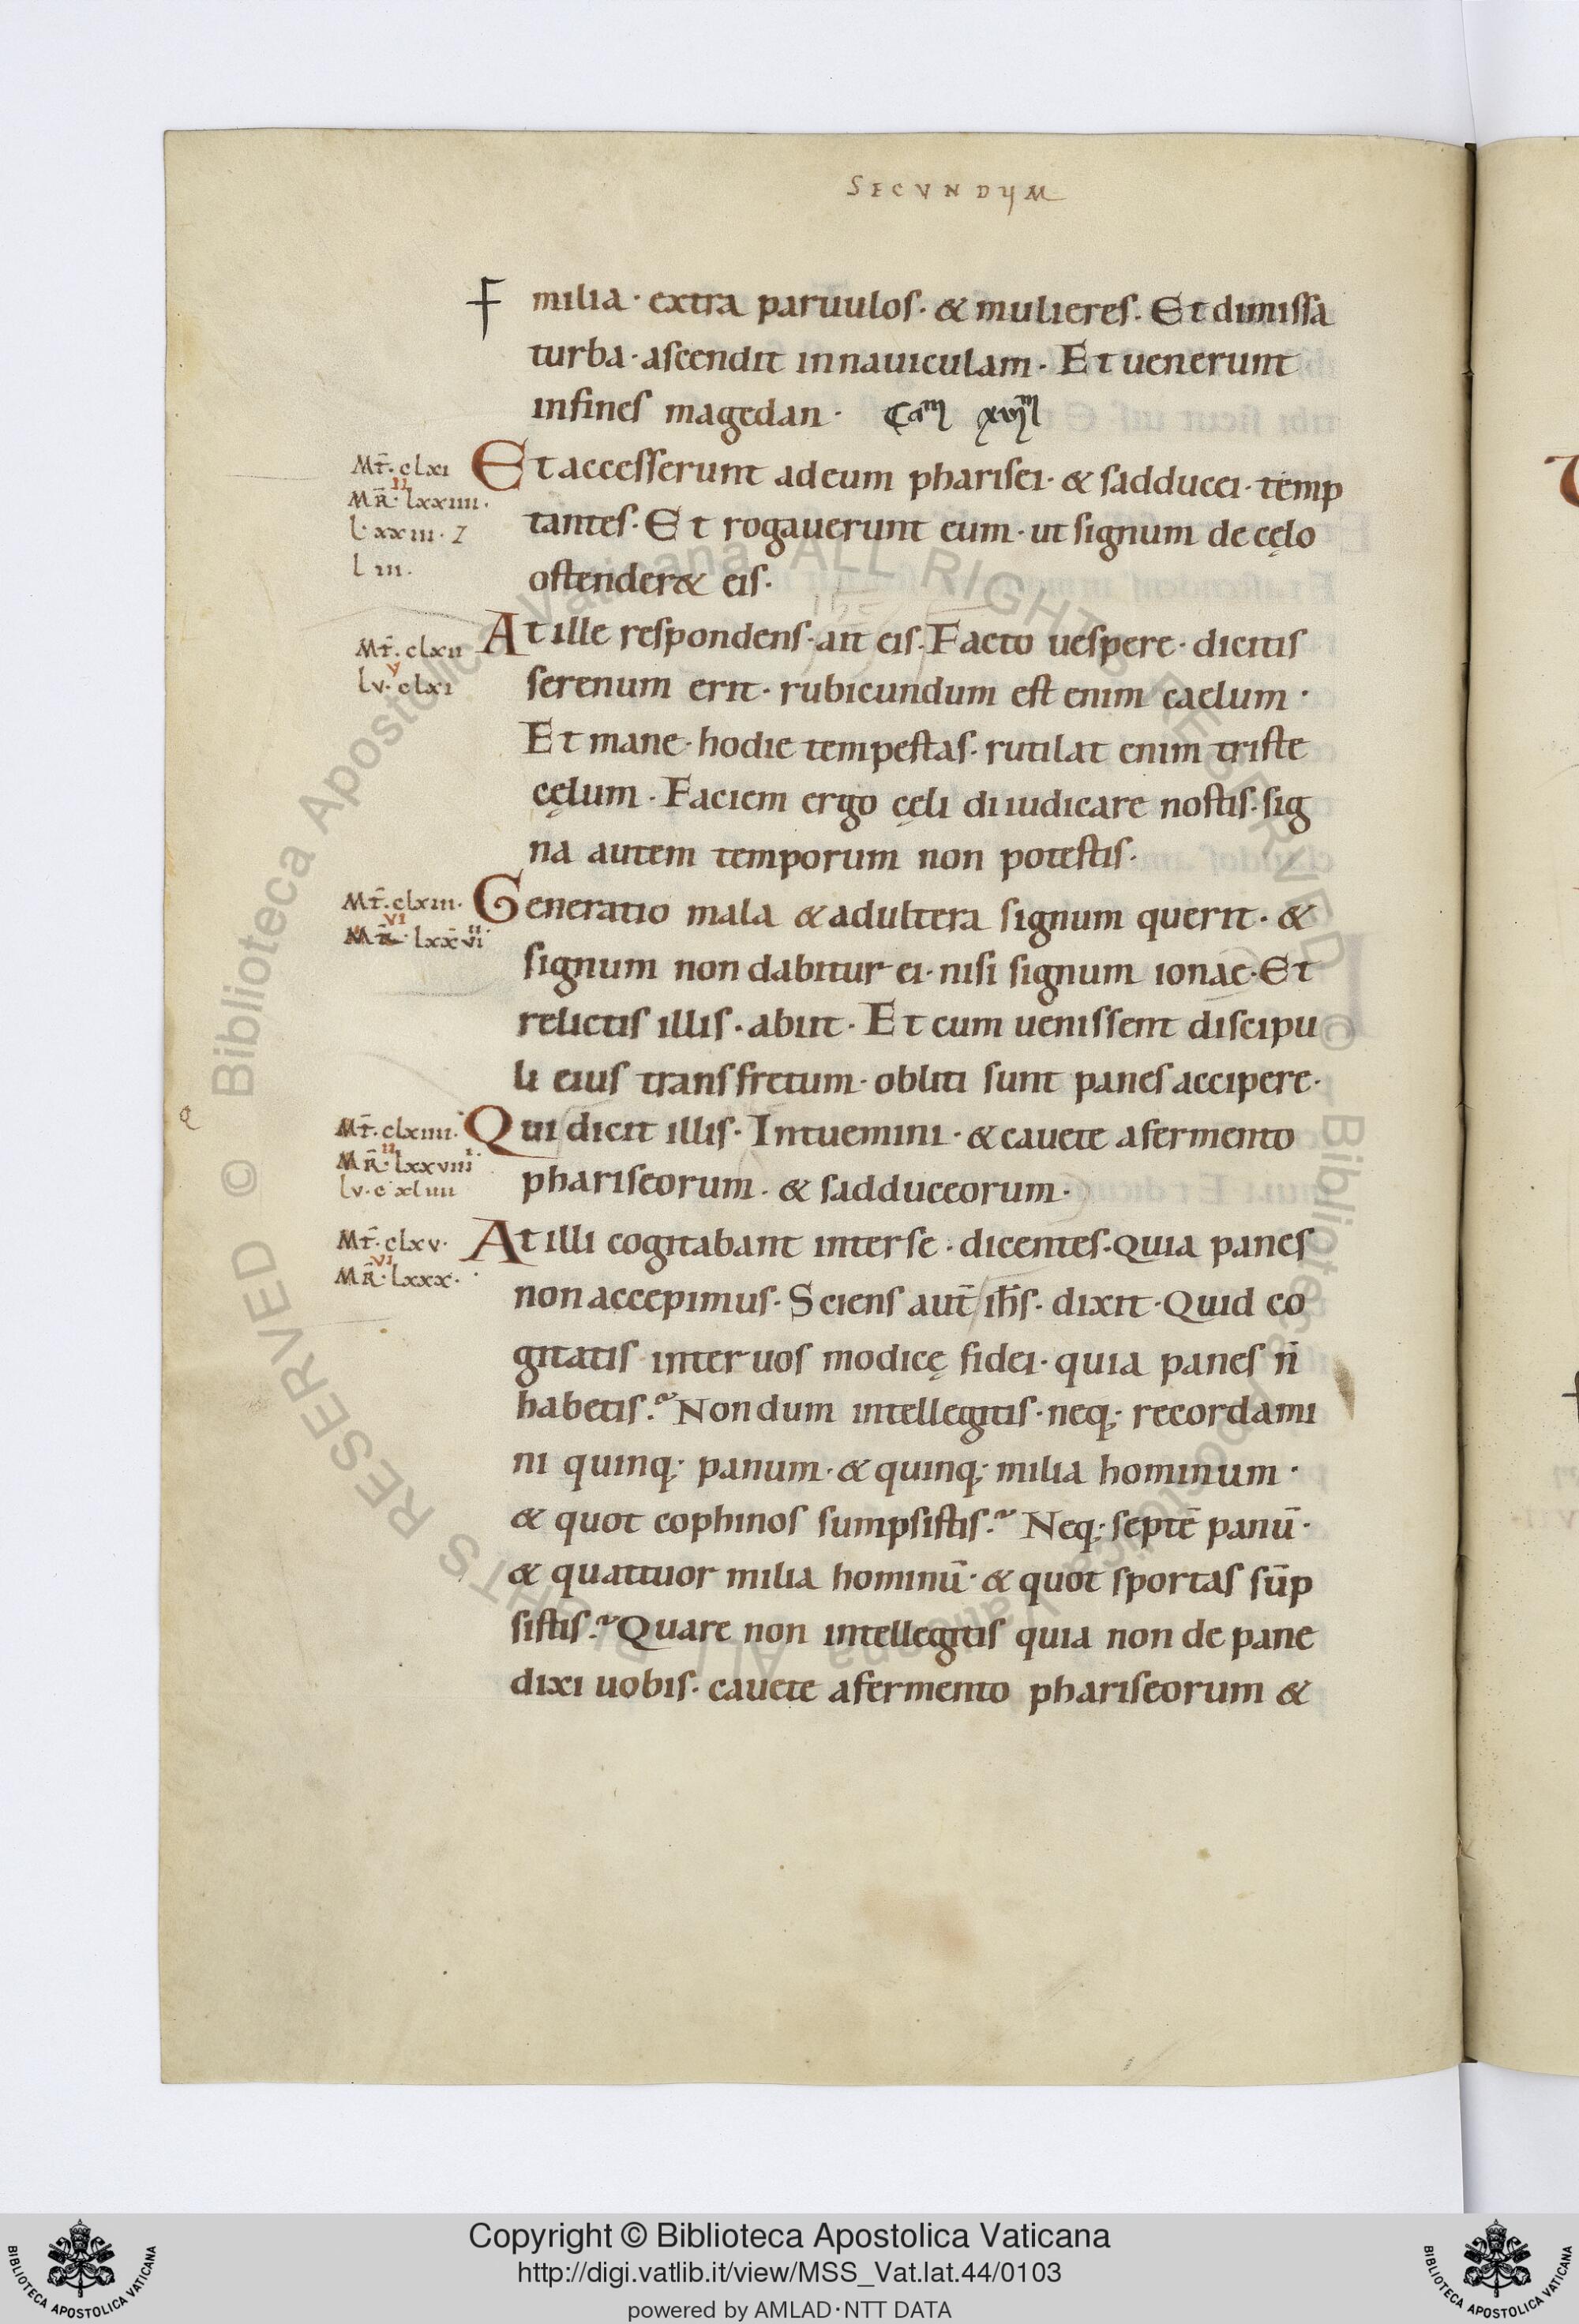 SECVNDVM
milia · extra paruulos · & mulieres. Et dimissa
turba · ascendit in nauiculam · Et uenerunt
in fines magedan · Cam xvjm
MT̄. clxi
II
MR̄. lxxiiii.
l. xxiii. 7
l iii.
Et accesserunt ad eum pharisei · & sadducei · temp
tantes · Et rogauerunt eum · ut signum de cęlo
ostender& eis.
MT̄. clxii
V
lv. clxi
At ille respondens · ait eis. Facto uespere · dicitis
serenum erit · rubicundum est enim caelum ·
Et mane · hodie tempestas · rutilat enim triste
cęlum · Faciem ergo cęli diiudicare nostis · sig
na autem temporum non potestis ·
MT̄. clxiii.
VI
MR̄. lxxvii
Generatio mala & adultera signum querit · &
signum non dabitur ei · nisi signum ionae · Et
relictis illis · abiit · Et cum uenissent discipu
li eius trans fretum · obliti sunt panes accipere ·
MT̄. clxiiii.
II
MR̄. lxxviiii
lv. cxliiii
Qui dicit illis · Intuemini · & cauete a fermento
phariseorum · & sadduceorum ·
MT̄. clxv.
VI
MR̄. lxxx.
At illi cogitabant inter se · dicentes · Quia panes
non accepimus · Sciens aut̄ ih̄s · dixit · Quid co
gitatis inter uos modicę fidei · quia panes n̄
habetis? Nondum intellegitis · neq; recordami
ni quinq; panum · & quinq; milia hominum ·
& quot cophinos sumpsistis? Neq; septē panū ·
& quattuor milia hominū · & quot sportas sūp
sistis? Quare non intellegitis quia non de pane
dixi uobis · cauete a fermento phariseorum &
© Biblioteca Apostolica Vaticana ALL RIGHTS RESERVED © Biblioteca Apostolica Vaticana ALL RIGHTS RESERVED
Copyright © Biblioteca Apostolica Vaticana
http://digi.vatlib.it/view/MSS_Vat.lat.44/0103
powered by AMLAD · NTT DATA
BIBLIOTECA APOSTOLICA VATICANA
BIBLIOTECA APOSTOLICA VATICANA